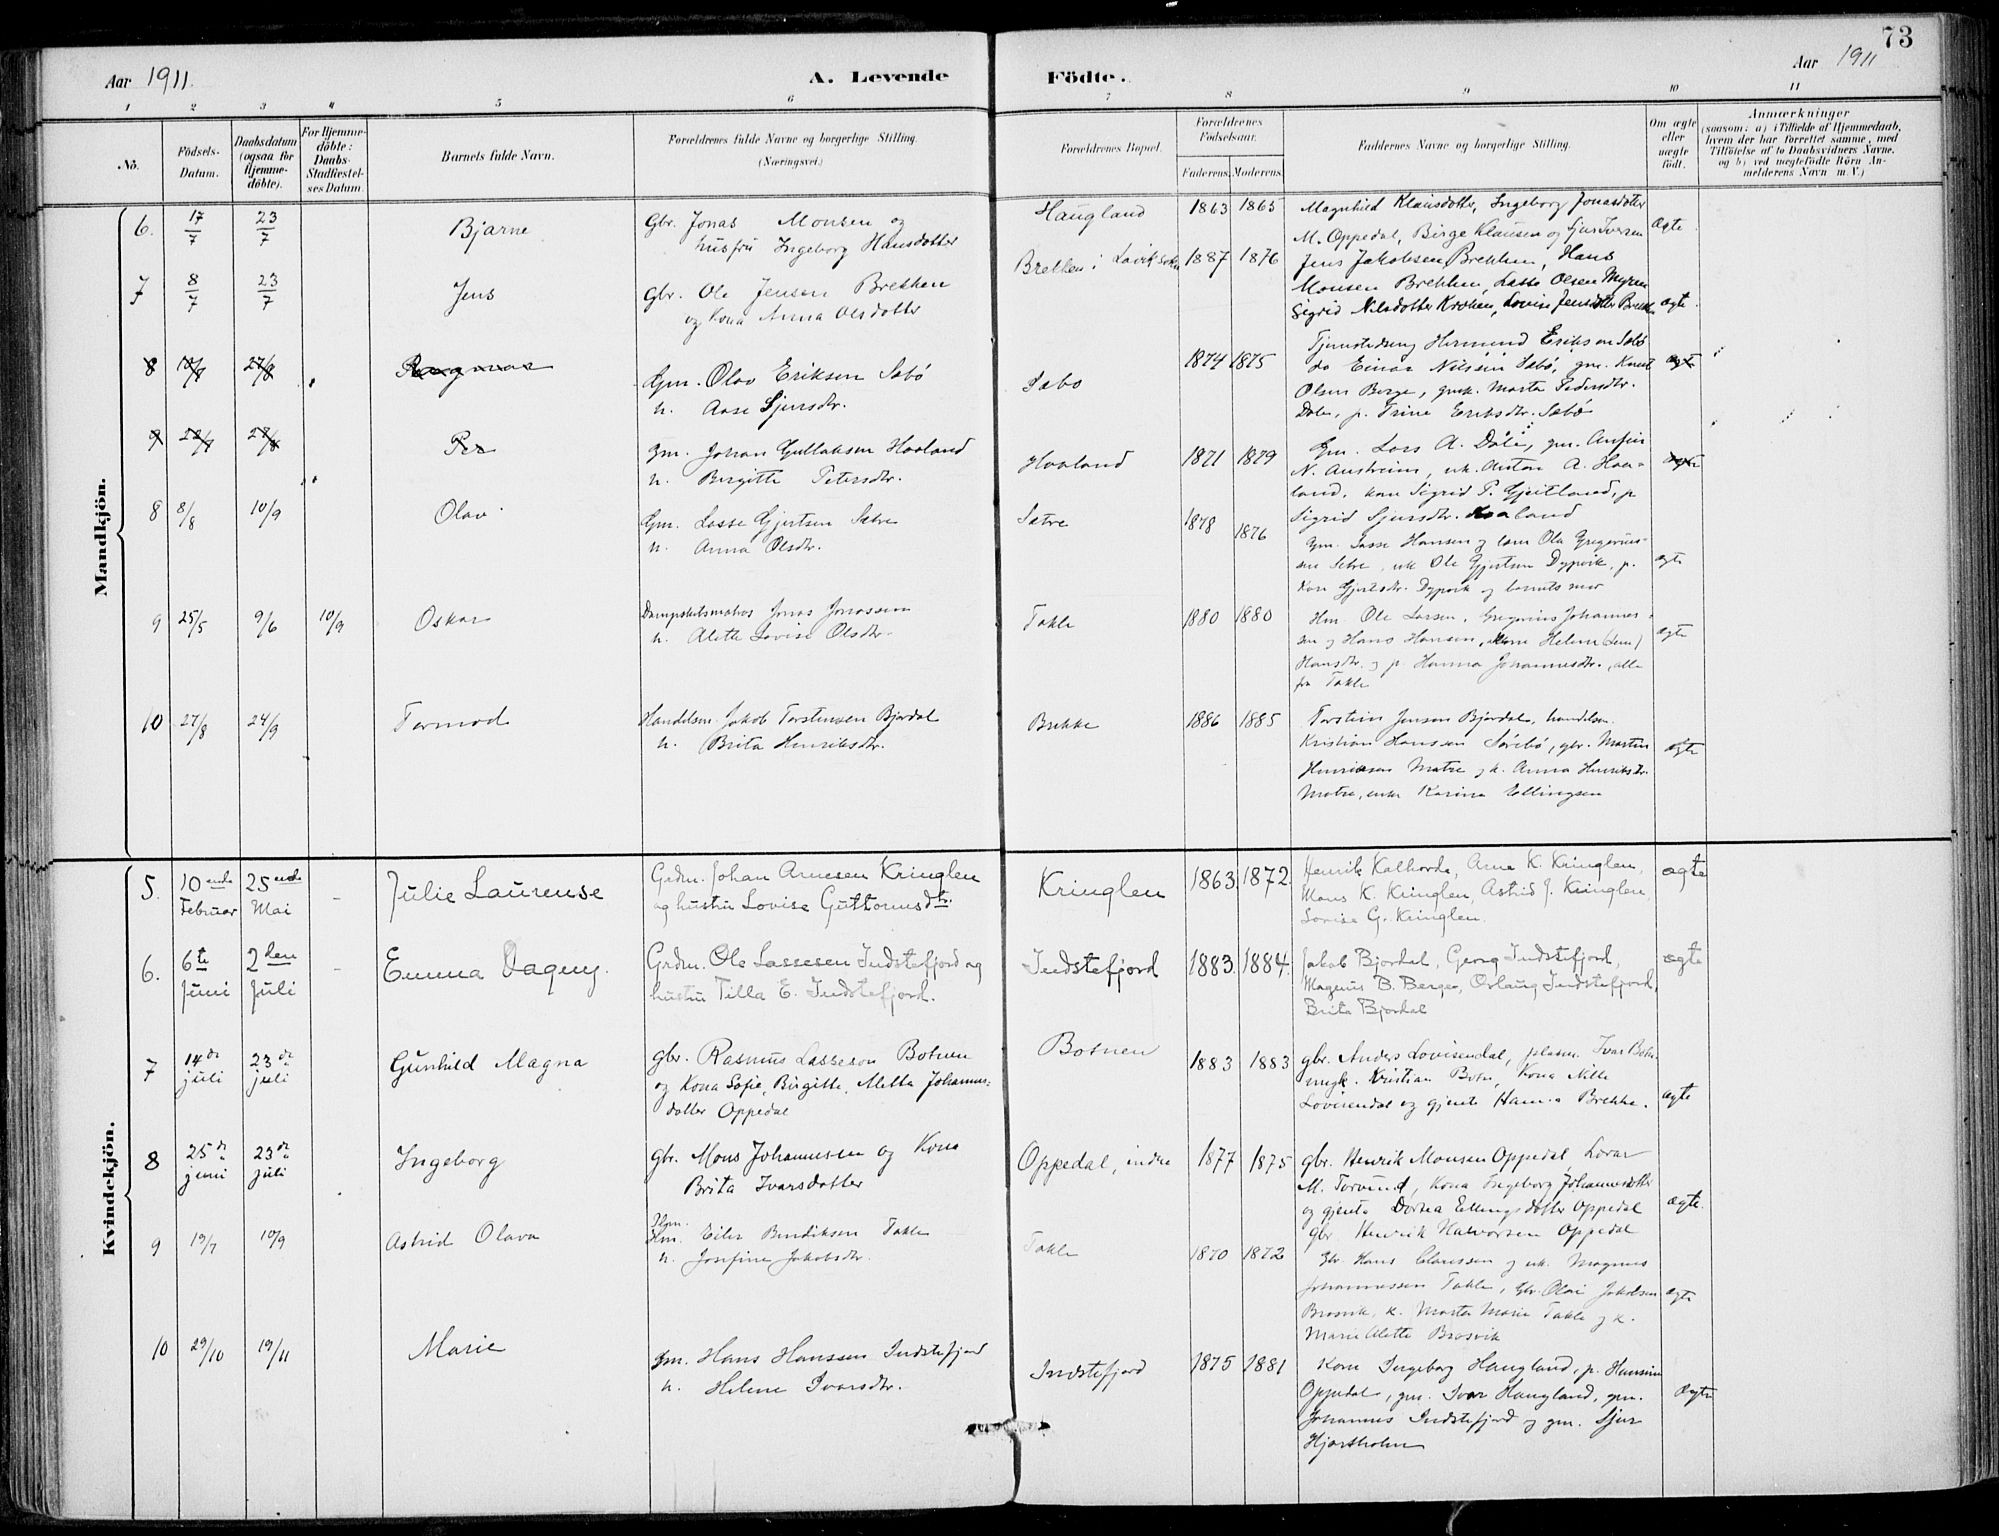 73
Aar 1911.
A. Levende
Födte.
Aar 1911
1 2 3 4 5 6 7 8 9 10 11
No.
Födsels-
Datum.
Daabsdatum
(ogsaa for
Hjemme-
döbte).
For Hjemme-
döbte:
Daabs-
Stadfæstel-
ses Datum.
Barnets fulde Navn.
Forældrenes fulde Navne og borgerlige Stilling.
(Næringsvei.)
Forældrenes Bopæl.
Forældrenes
Födselsaar.
Faderens. Moderens.
Faddernes Navne og borgerlige Stilling.
Om ægte
eller
uægte
født.
Anmærkninger
(saasom: a) i Tilfælde af Hjemmedaab,
hvem der har forrettet samme, med
Tilföielse af to Daabsvidners Navne.
og b) ved uægtefödte Börn An-
melderens Navn m. V.)
Mandkjön.
6. 17/7 23/7 Bjarne
Gbr. Jonas Monsen og
husfru Ingeborg Hansdotter
Haugland 1863 1865
Magnhild Klausdotter, Ingeborg Jonasdotter
M. Oppedal, Birge Klausen og Sjur Iversen
Ægte
7 8/7 23/7 Jens
Gbr. Ole Jensen Brekken
og Kona Anna Olsdotter
Brekken i Laviksokn 1887 1876
Jens Jakobsen Brekken, Hans
Monsen Brekken, Lasse Olsen Myren
Sigrid Nilsdotter Kroken, Lovise Jensdotter Brekken
ægte
8 27/8 Ragnar
Gm. Olav Eriksen Sæbö
h. Aase Sjursdtr.
Sæbo 1874 1875
Tjenestedreng Hermund Eriksen Sæbö
do Einar Nilssen Sæbö, gm. Knut
Olsen Berge, gmk. Marta Pedersdtr.
Dale, p. Trine Eriksdtr. Sæbö
ægte
9 27/8 Per
Gm. Johan Gullaksen Haaland
h. Birgitte Petersdtr.
Haaland 1871 1879
Gm. Lars A. Dale, gm. Anfin
N. Austreim, uk. Anton A. Haa-
land, kone Sigrid P. Gjeitland, p
Sigrid Sjursdtr. Haaland
ægte
8 8/8 10/9 Olav
Gm. Lasse Gjertsen Sætre
h. Anna Olsdtr.
Sætre 1878 1876
Gm. Lasse Hansen g lærer Ole Gregorius-
sen Sætre, uk Ole Gjertsen Dypvik, p.
Kari Gjertsdtr. Dypvik og barnets mor
ægte
9 25/5 9/6 10/9 Oskar
Dampskibsmatros Jonas Jonassen
h. Alette Lovise Olsdtr.
Takle 1880 1880
Hm. Ole Larsen, Gregorius Johannes-
sen g Hans Hansen, kone Helene (Lene)
Hansdtr. g p. Hanna Johannesdtr. alle
fra Takle
ægte
10 27/8 24/9 Tormod
Handelsm. Jakob Torstensen Bjordal
h. Brita Henriksdtr.
Brekke 1886 1885
Torstein Jensen Bjordal, handelsm.
Kristian Hanssen Sörebö, gbr. Martin
Henriksen Matre g k. Anna Henriksdtr.
Matre, enke Karina Ellingsen
ægte
Kvindekjön.
5. 10ende Februar 25ende Mai - Julie Laurense
Grdm. Johan Arnesen Kringlen
og hustru Lovise Guttormsdtr.
Kringlen 1863. 1872.
Henrik Kalhovde, Arne K. Kringlen,
Mons K. Kringlen, Astrid J. Kringlen
Lovise G. Kringlen.
ægte
6. 6te Juni 2den Juli - Emma Dagny.
Grdm. Ole Lassesen Indstefjord og
hustru Tilla E. Indstefjord.
Indstefjord 1883. 1884.
Jakob Bjordal, Georg Indstefjord,
Magnus B. Berge, Oslaug Indstefjord,
Brita Bjordal
ægte
7 14de juli 23de juli Gunhild Magna
gbr. Rasmus Lasseson Botnen
og Kona Sofie, Birgitte, Metta Johannes-
dotter Oppedal
Botnen 1883 1883
gbr. Anders Lovisendal, plassm. Ivar Botn.
ungk. Kristian Botn, Kona Nille
Lovisendal og gjente Hanna Brekke.
ægte
8 25de juni 23de juli Ingeborg
gbr. Mons Johannesen og Kona
Brita Ivarsdotter
Oppedal, indre 1877 1875
gbr. Henrik Monsen Oppedal, Lovar
M. Torvund, Kona Ingeborg Johannesdotter
og gjenta Dortea Ellingsdotter Oppedal
gbr Henrik Halvorsen Oppedal
ægte.
9 19/7 10/9 Astrid Olava
Hm. Eiler Bendiksen Takle
h. Josefine Jakobsdtr.
Takle 1870 1872
Gbr. Hans Claussen g uk. Magnus
Johannessen Takle, Gbr. Olai Jakobsen
Brosvik, k. Marta Marie Takle g k.
Marie Alette Brosvik
ægte
10 29/10 19/11 Marie
Gm. Hans Hanssen Indstefjord
h. Helene Ivarsdtr.
Indstefjord 1875 1881
Kone Ingeborg Haugland, p. Hansine
Oppedal, gm. Ivar Haugland, gm.
Johannes Indstefjord g gm. Sjur
Hjartholm
Ægte